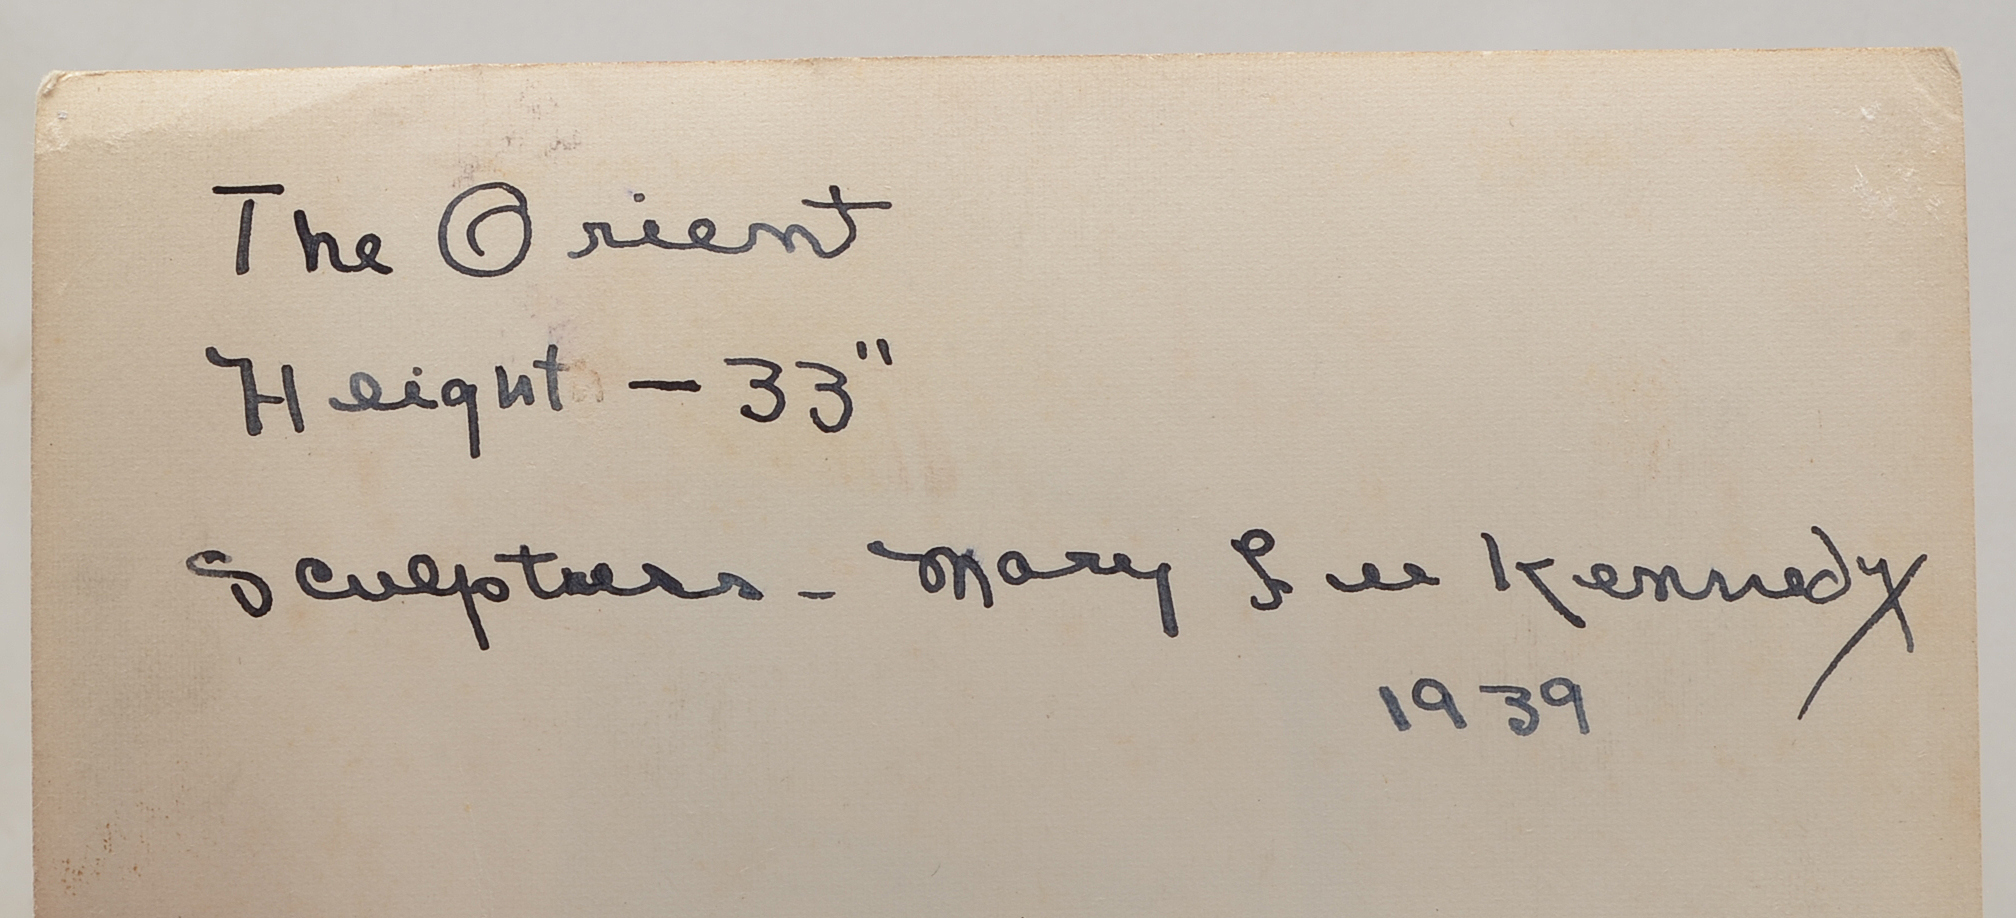 The Orient
Height - 33"
Sculptress - Mary Lee Kennedy
1939